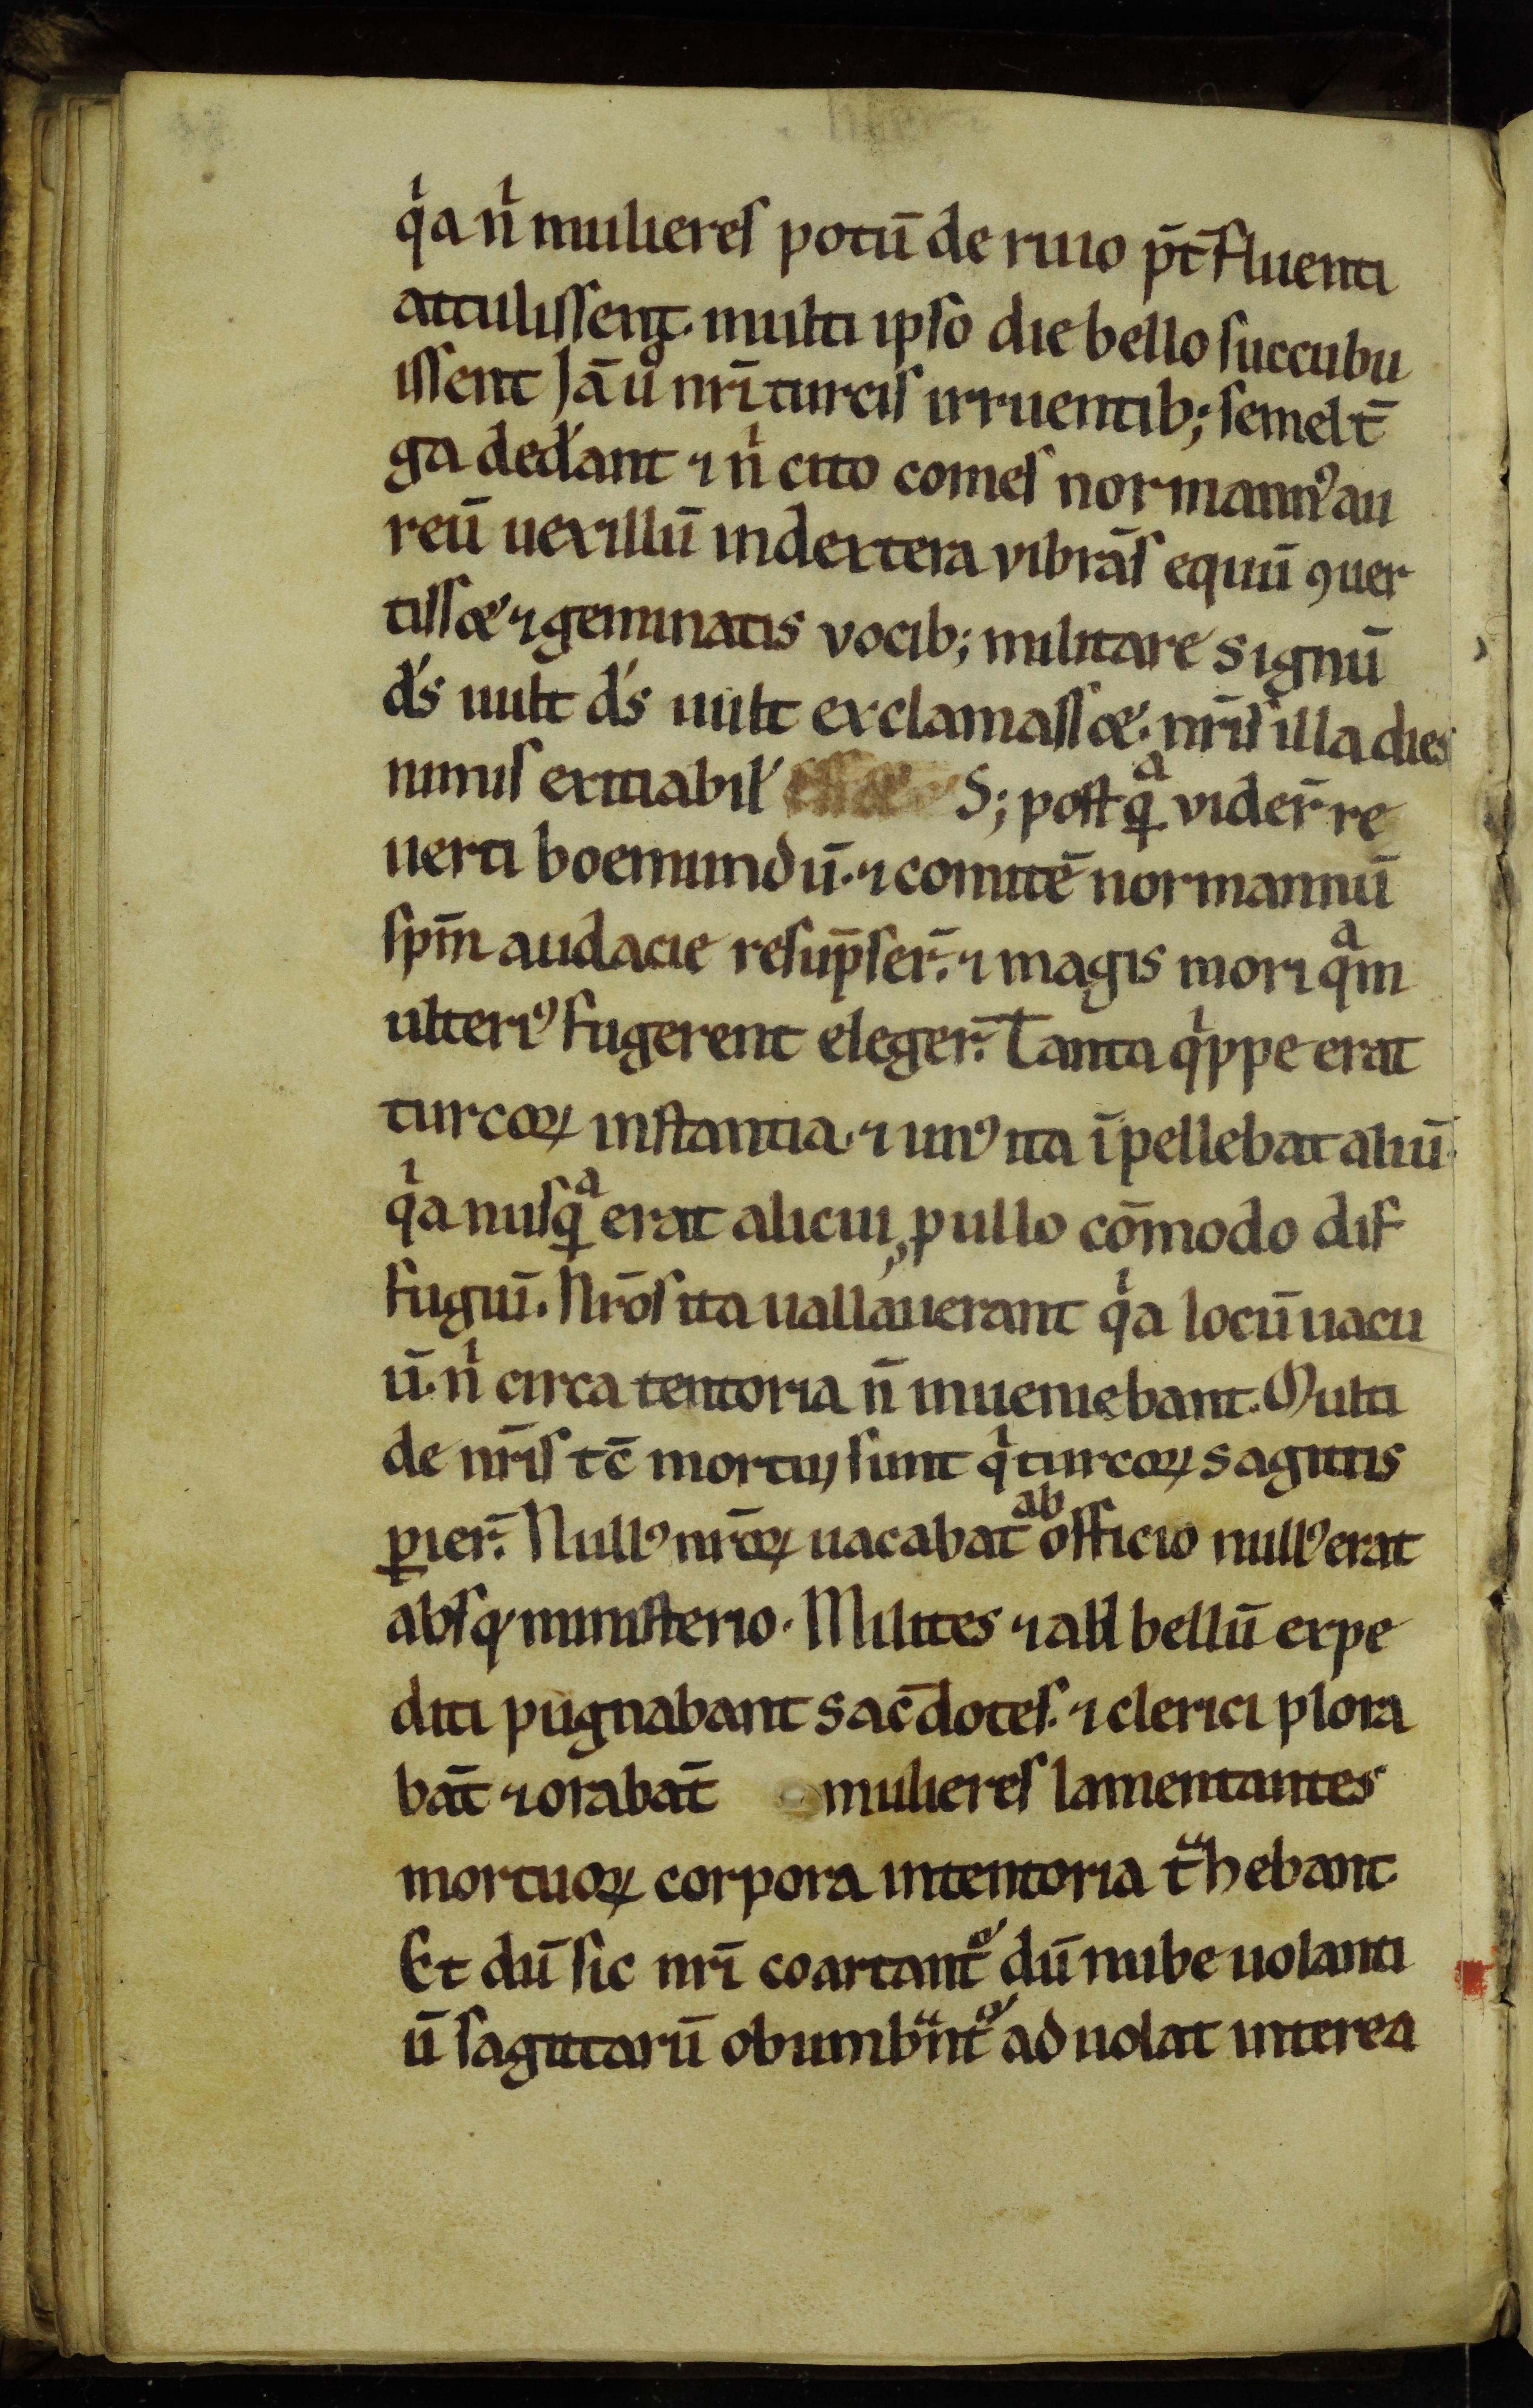 qͥa nͥ mulieres potū de riuo p̄t̄fluenti
attulissent. multi ipso die bello succubu
issent Jā ů nr̄i turcis irruentib; semel t̄
ga ded̕ant ⁊ nͥ cito comes normannꝰ au
reū uexillū in dextera vibrās equū ꝯuer
tissæ ⁊ geminatis vocib; militare signū
d̕s uult d̕s uult exclamassæ. nr̄is illa dies
nimis exitiabil̕ essæ S; postqͣ vider̄ re
uerti boemundū. ⁊ comitē normannū
sp̄m audacie resūpser̄. ⁊ magis mori qͣm
ulteriꝰ fugerent eleger̄. Tanta qͥppe erat
turcoꝝ instantia. ⁊ unꝰ ita īpellebat aliū.
qͥa nusqͣ erat alicui, p ullo cōmodo dif
fugiū. Nr̄os ita uallauerant qͥa locū uacu
ū. nͥ circa tentoria n̄ inueniebant. Multi
de nr̄is tc̄ mortui sunt qͥ turcoꝝ sagittis
ꝑier̄. Nullꝰ nr̄oꝝ uacabat ab officio nullꝰ erat
absqꝫ ministerio. Milites ⁊ ad bellū expe
diti pugnabant sac̄dotes. ⁊ clerici plora
bāt ⁊ orabāt mulieres lamentantes
mortuoꝝ corpora in tentoria tͣhebant
Et dū sic nr̄i coartant᷑ dū nube uolanti
ū sagittarū obumbͣnt᷑ aduolat interea